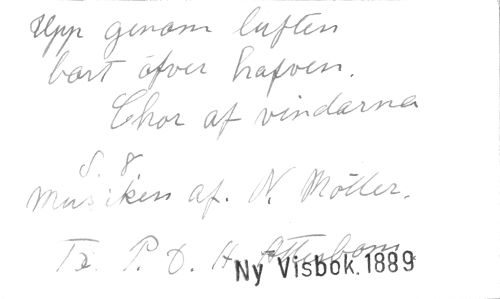 Upp genom luften
bort öfver hafven.
Chor af vindarna
S. 8
Musiken af. N. Möller.
Tx. P. D. A. Atterbom
Ny Visbok.1889